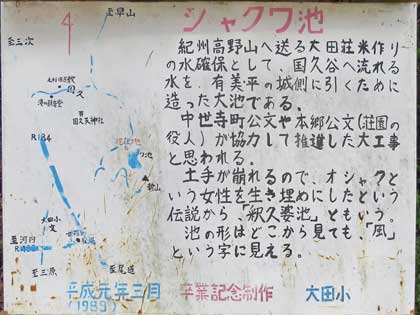 シャクワ池
紀州高野山へ送る大田荘米作り
の水確保として、国久谷へ流れる
水を、有美平の城側に引くために
造った大池である。
中世寺町公文や本郷公文(荘園の
役人)が協力して推進した大工事
と思われる。
土手が崩れるので、オシャクと
いう女性を生き埋めにしたという
伝説から、「釈久婆池」ともいう。
池の形はどこから見ても、「風」
という字に見える。
至早山
至三次
国久
国久天神
R184
大田小
至河内
至三原
至尾道
平成元年三月
(1989)
卒業記念制作
大田小